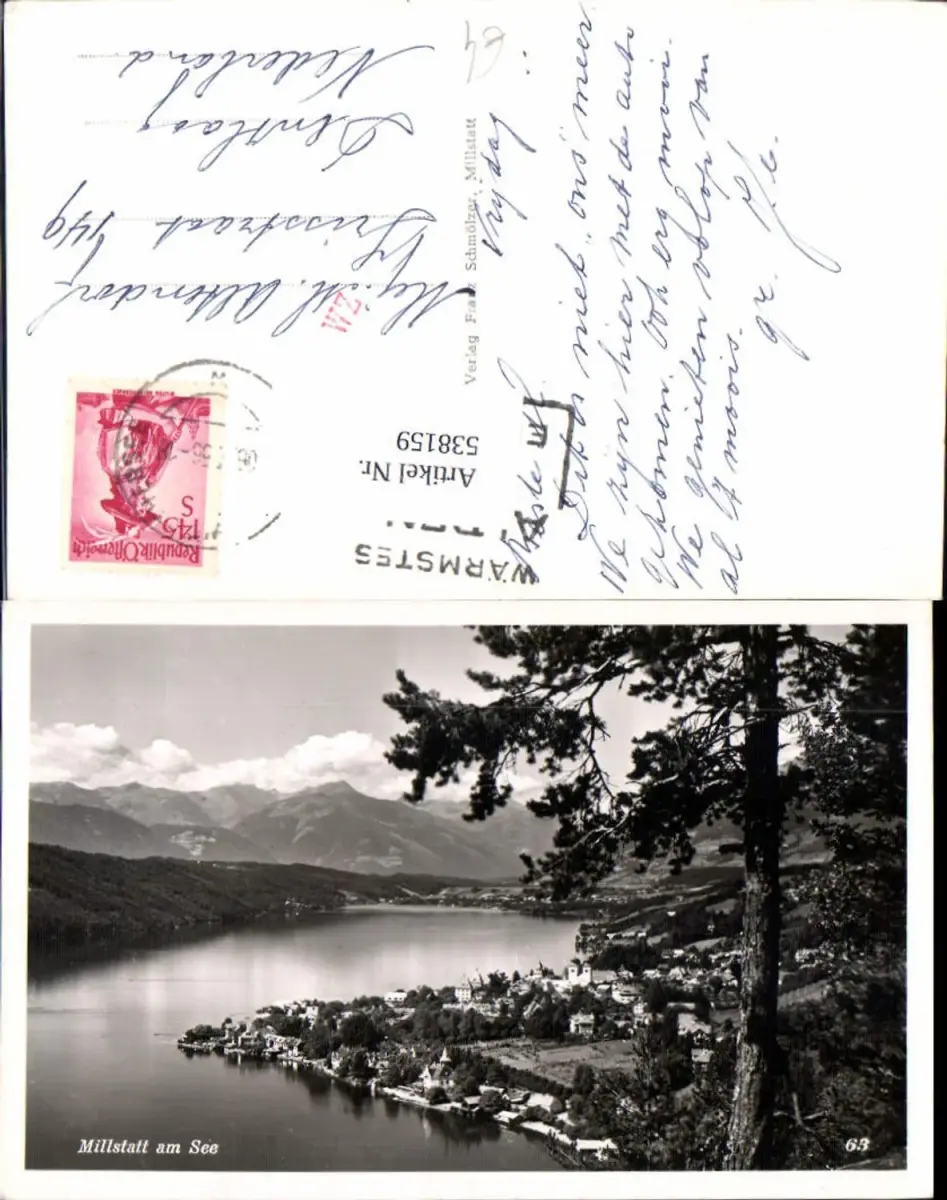 Vrydag
Beste M.
Dit is niet „ons" meer.
We zyn hier met de auto
gekomen. Ook erg mooi.
We genieten volop van
al 't moois.
gr.
Verlag Franz Schmölzer, Millstatt
Mej. M. Altendorf
Irisstraat 449
Den Haag
Nederland
WZ
Republik Österreich
1·45
S
Artikel Nr.
538159
WÄRMSTES
Millstatt am See
63